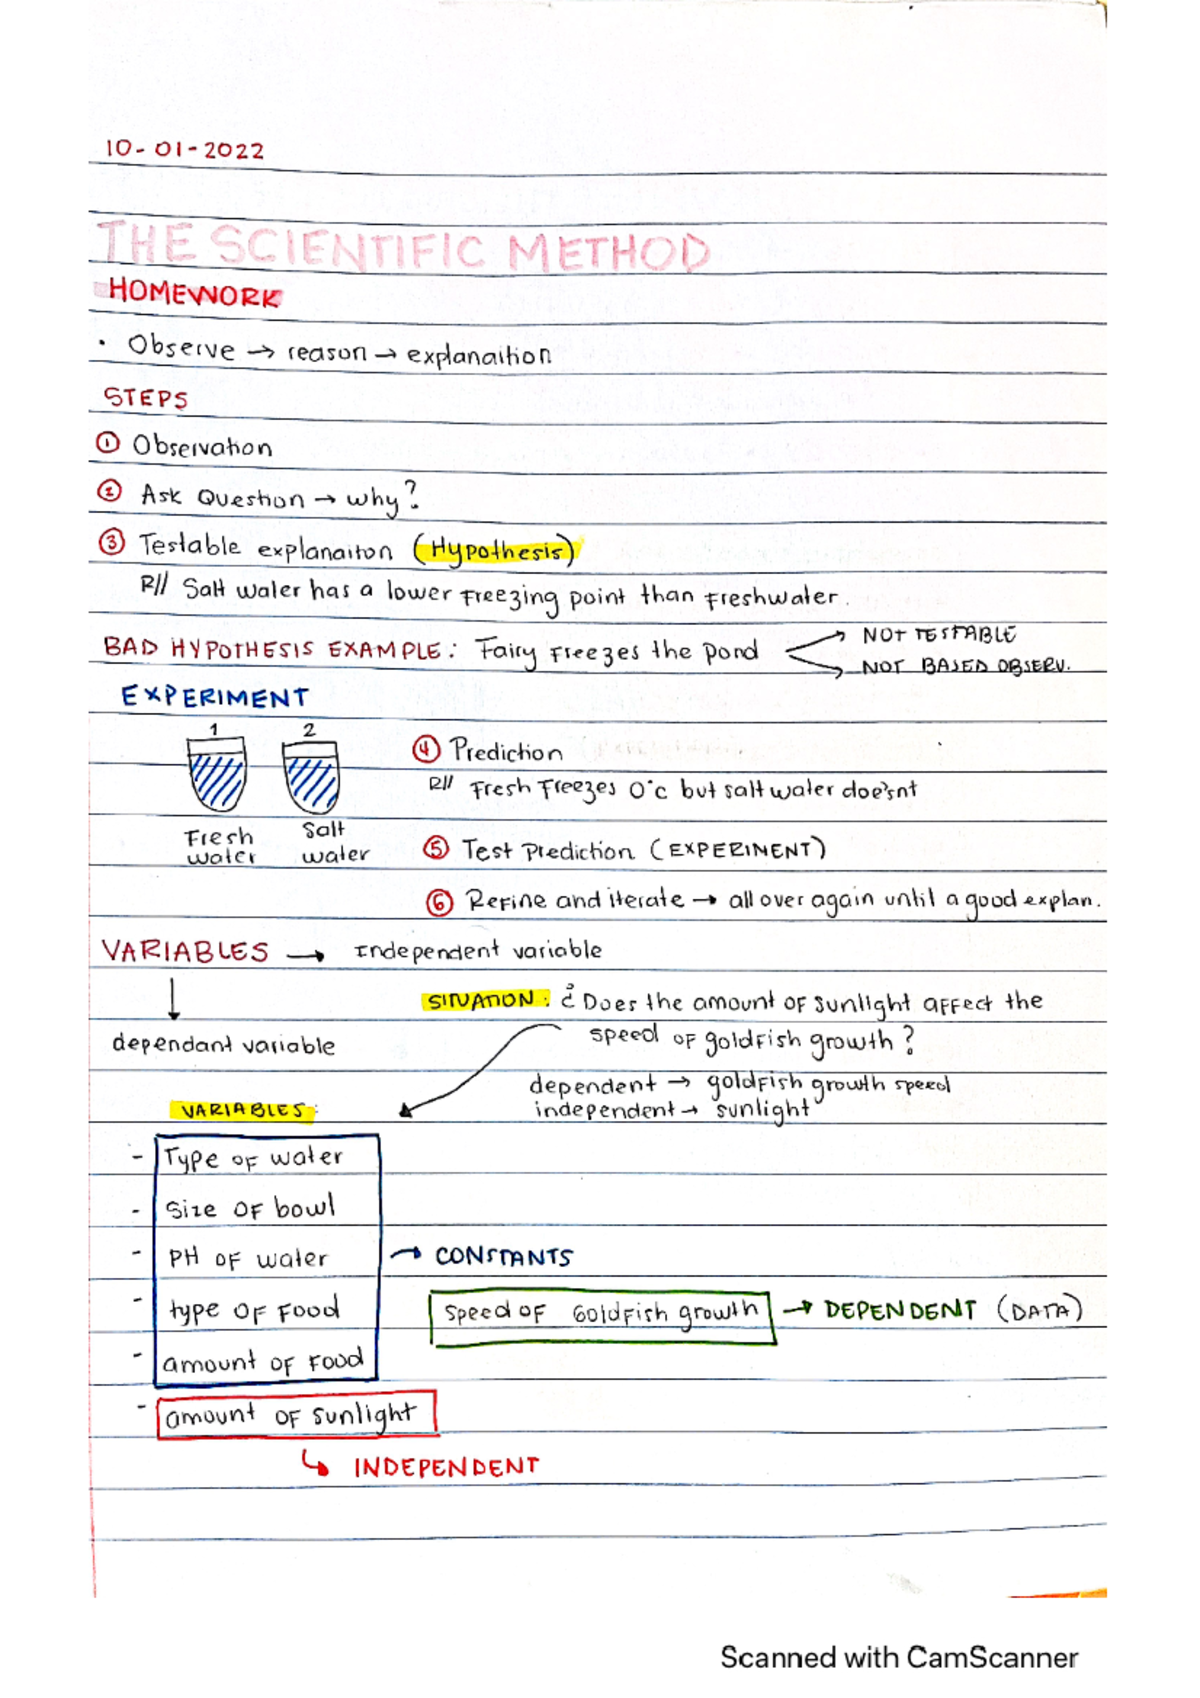 10-01-2022
THE SCIENTIFIC METHOD
HOMEWORK
· Observe → reason → explanaition
STEPS
① Observation
② Ask Question → why?
③ Testable explanaiton (Hypothesis)
R// Salt water has a lower freezing point than freshwater.
BAD HYPOTHESIS EXAMPLE: Fairy freezes the pond
NOT TESTABLE
NOT BASED OBSERV.
EXPERIMENT
1 2
Fresh water
Salt water
④ Prediction
R// Fresh freezes 0°c but salt water doe'snt
⑤ Test Prediction (EXPERIMENT)
⑥ Refine and iterate → all over again until a good explan.
VARIABLES → Independent variable
dependant variable
SITUATION: ¿Does the amount of sunlight affect the
speed of goldfish growth?
dependent → goldfish growth speed
independent → sunlight
VARIABLES:
- Type of water
- Size of bowl
- PH of water → CONSTANTS
- type of food
speed of Goldfish growth → DEPENDENT (DATA)
- amount of food
- amount of sunlight
↳ INDEPENDENT
Scanned with CamScanner